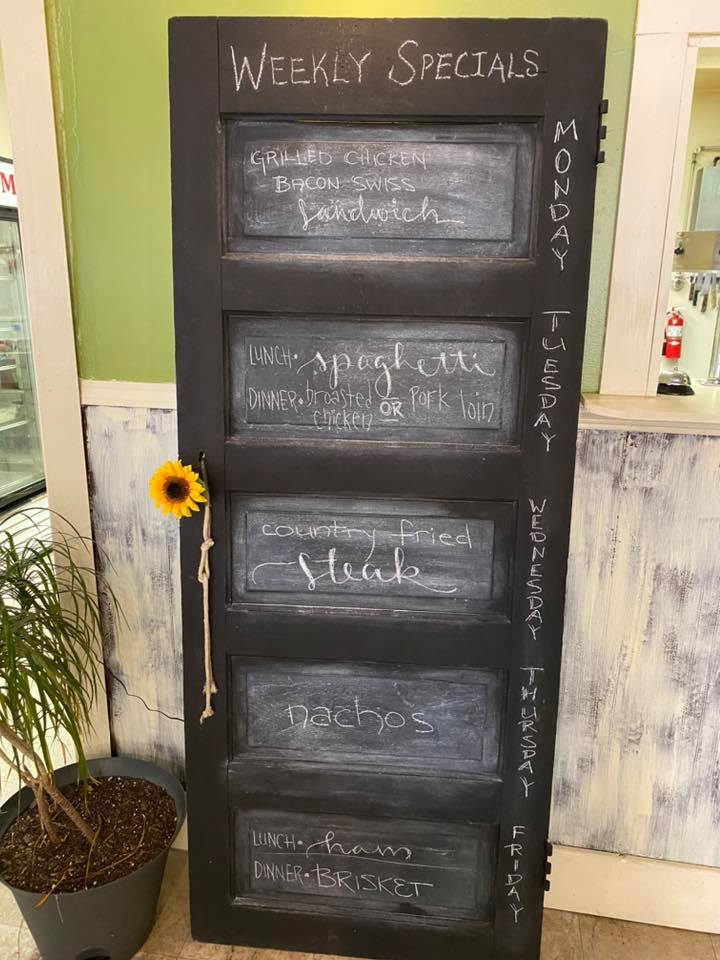 WEEKLY SPECIALS
GRILLED CHICKEN
BACON SWISS
Sandwich
MONDAY
LUNCH• spaghetti
DINNER• broasted chicken OR Pork loin
TUESDAY
country fried
Steak
WEDNESDAY
nachos
THURSDAY
LUNCH• ham
DINNER• BRISKET
FRIDAY
M